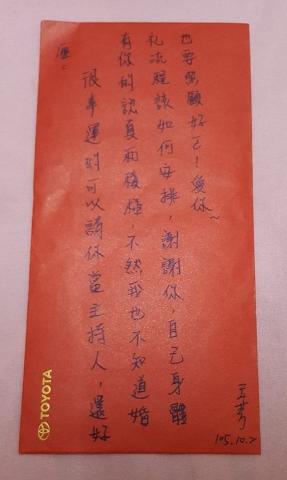 很幸運的可以請你當主持人，還好
有你的認真積極，不然我也不知道婚
禮流程該如何安排，謝謝你，自己身體
也要照顧好ㄛ！愛你~
105.10.2
TOYOTA